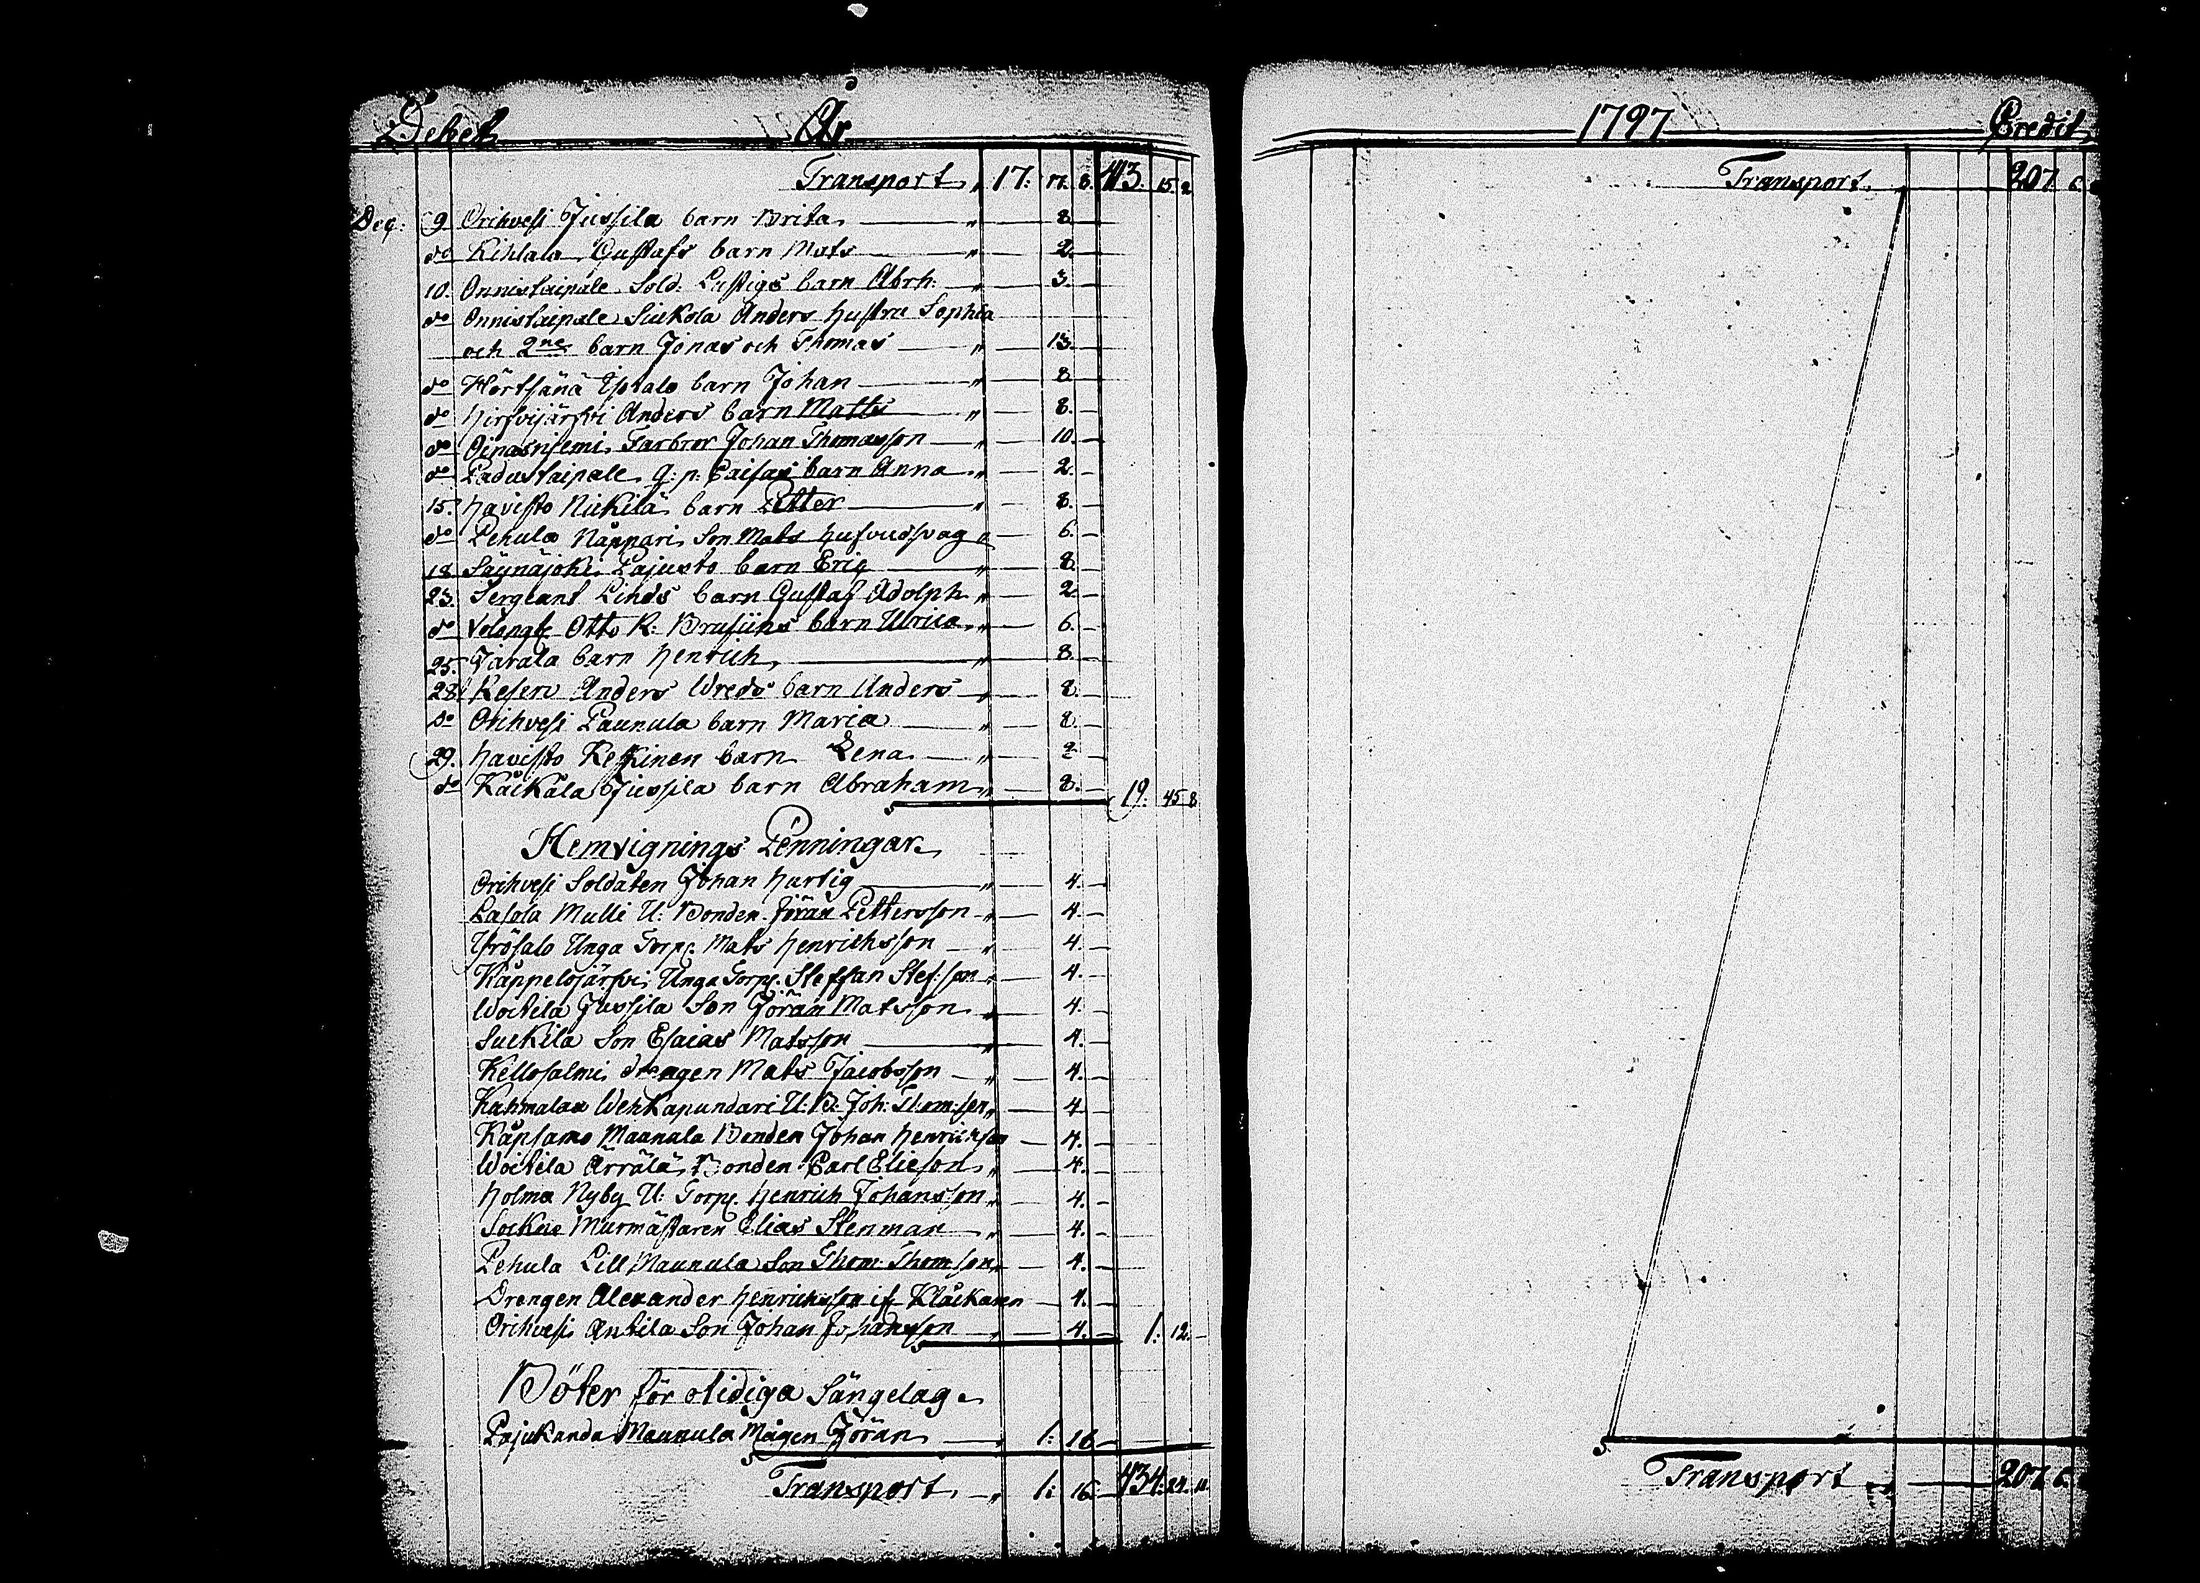 Debet År
Transport " 17: 17. 8. 413. 15. 2
Dec: 9 Orihvesi Jussila barn Brita " 8
do Kihlala Gustafs barn Mats " 2.
10. Onnistaipale Sold: Lustigs barn Abrh: " 3.
do Onnistaipale Siukola Anders Hustru Sophia
och 2ne barn Jonas och Thomas " 13.
do Hörtsänä barn Johan " 8
do Hirfvijärfvi Anders barn Matts " 8.
do Oinasniemi Farbror Johan Thomasson " 10.
do Padustaipale Q: p: Caisas barn Anna " 2.
15. Havisto Nickilä barn Petter " 8.
do Pehula Nappari Son Mats 6.
18 Säynäjoki Pajusto barn Eric " 8.
23. Sergeant Linds barn Gustaf Adolph " 2.
do Otto R: Brusiins barn Ulrica " 6.
25. Jårala barn Henrich " 8.
28 Reserv Anders Wreds barn Anders " 8.
do Orihvesi Paunula barn Maria " 8.
29. Havisto Keskinen barn Lena " 2
do Käikälä Jussila barn Abraham " 8. 19: 45 8
Hemvignings Penningar
Orihvesi Soldaten Johan Hurtig " 4.
Lasola Mulli U: Bonden Jöran Pettersson " 4.
Yrösalo Unga Torp: Mats Henrichsson " 4.
Käppelojärfvi Unga Torp. Steffan Stef:son " 4.
Woitila Jussila Son Jöran Matsson " 4.
Suckila Son Esaias Matsson " 4.
Kellosalmi drengen Mats Jacobsson " 4.
Kuhmalax Wehkapundari U: B: Joh: Thom:son " 4.
Kåpsamo Maunula Bonden Johan Henrichson 4.
Woitila Ärrälä Bonden Carl Elieson " 4.
Holma Nyby U: Torp. Henrich Johansson " 4.
Murmästaren Elias Stenman " 4.
Pehula Lill Maunula Son Thom: Thom:son " 4.
Drengen Alexander Henrichsson if 4.
Orihvesi Antila Son Johan Johansson " 4. 1: 12.
Böter för otidiga Sängelag
Pajukanda Maunula Mågen Jöran 1: 16
Transport " 1: 16 434: 24
1797 Credit
Transport 207
Transport 207